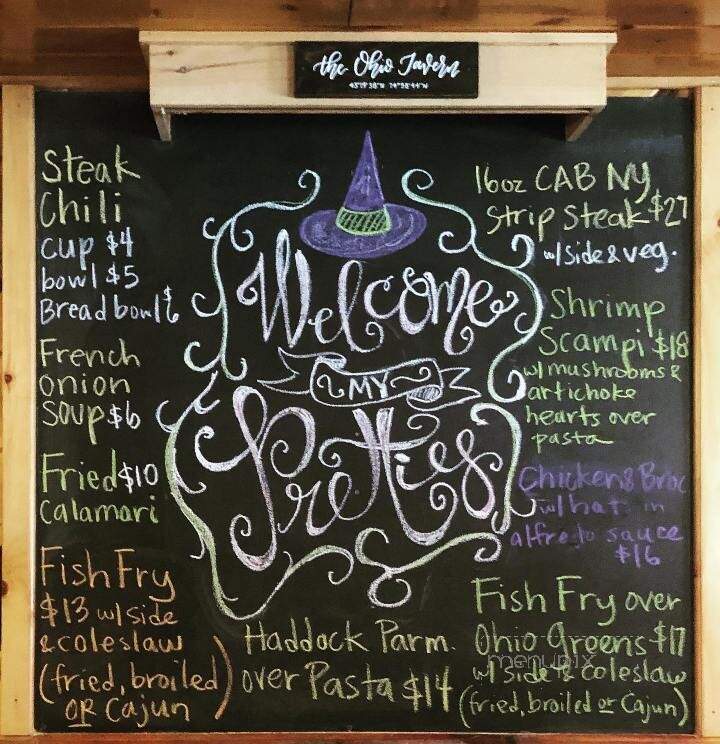 the Ohio Tavern
43°19'38"N 74°58'44"W
Steak
Chili
cup $4
bowl $5
Bread bowl $6
French
onion
Soup $6
Fried $10
Calamari
Fish Fry
$13 w/side
& coleslaw
(fried, broiled
OR Cajun)
Welcome
MY
Pretties
Haddock Parm.
over Pasta $14
16oz CAB NY
Strip Steak $27
w/side & veg.
Shrimp
Scampi $18
w/mushrooms &
artichoke
hearts over
pasta
Chicken & Broc
w/hat in
alfredo sauce
$16
Fish Fry over
Ohio Greens $17
w/side & coleslaw
(fried, broiled or Cajun)
menupix